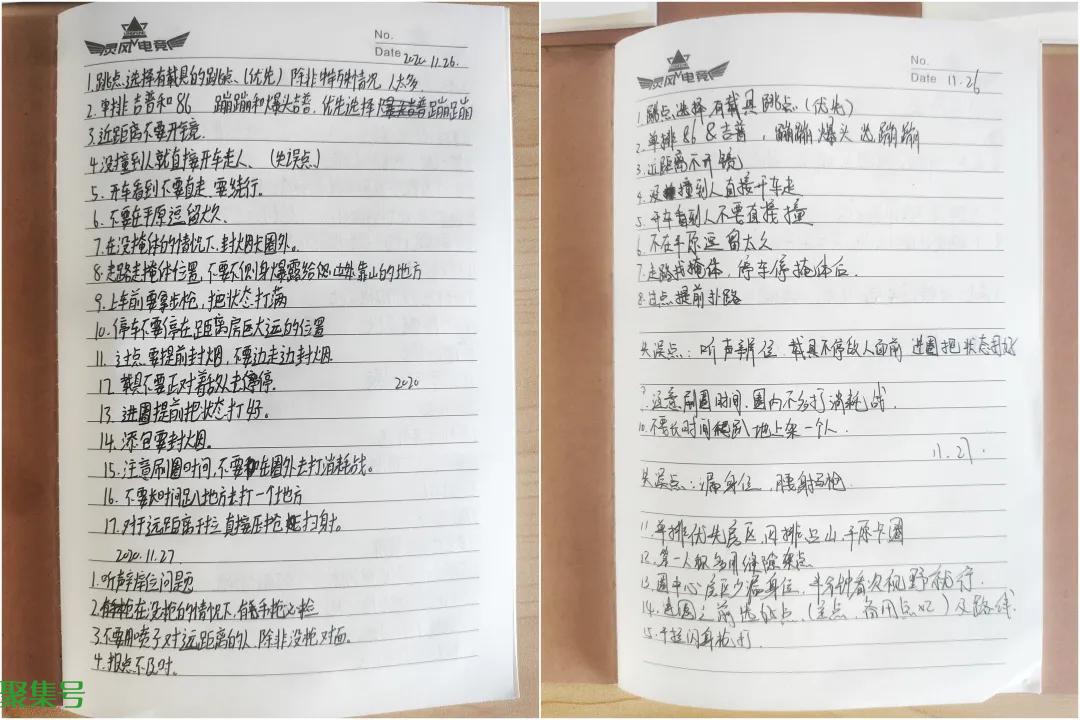 灵风电竞
No.
Date 2020 11.26.
1.跳点选择有载具的跳点、(优先) 除非特殊情况 人太多
2.单排吉普和86 蹦蹦和爆头吉普，优先选择蹦蹦
3.近距离不要开镜.
4.没撞到人就直接开车走人、(失误点)
5.开车看到不要直走，要绕行。
6.不要在平原逗留太久、
7.在没掩体的情况下，封烟去圈外。
8.走路走掩体位置，不要不侧身爆露给 靠山的地方
9.上车前要拿步枪，把状态打满
10.停车不要停在距离房区太远的位置
11.过点要提前封烟，不要边走边封烟
12.载具不要正对着敌人去停. 2020
13.进圈提前把状态打好。
14.添包要封烟。
15.注意刷圈时间，不要在圈外去打消耗战。
16.不要长时间趴地方去打一个地方
17.对于远距离 直接压枪扫射。
2020.11.27
1.听声辨位问题
2.在没枪的情况下，有手枪必捡
3.不要用喷子对远距离的人，除非没枪对面。
4.报点不及时。
聚集号
灵风电竞
No.
Date 11.26
1.跳点选择有载具跳点.(优先)
2.单排86&吉普，蹦蹦爆头选蹦蹦
3.近距离不开镜
4.没撞到人直接开车走
5.开车看到人不要直接撞
6.不在平原逗留太久
7.走路找掩体，停车停掩体后.
8.过点提前封路
失误点：听声辨位 载具不停敌人面前 进圈把状态打好
9.注意刷圈时间.圈内不多打消耗战.
10.不要长时间趴地上架一个人.
11.27.
失误点：漏身位，腰射扫枪
11.单排优先房区，四排占山.平原卡圈
12.第一人称多用缝隙架点
13.圈中心房区少漏身位，半分钟看次视野就行.
14.进圈之前选好点，(主点，备用点x2)及路线.
15.平拉闪身枪打